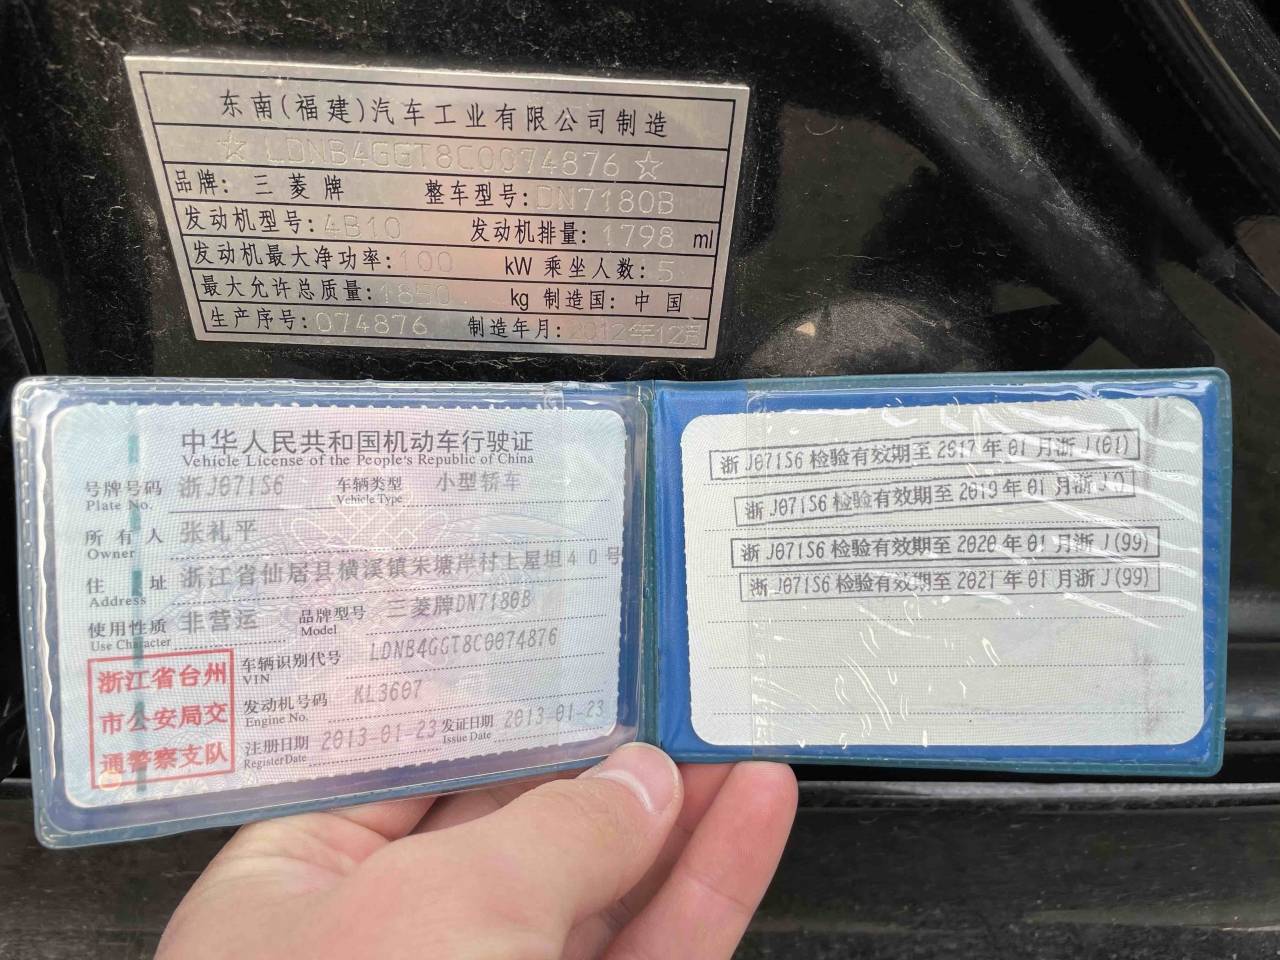 东南(福建)汽车工业有限公司制造
☆ LDNB4GGT8C0074876 ☆
品牌: 三菱牌 整车型号: DN7180B
发动机型号: 4B10 发动机排量: 1798 ml
发动机最大净功率: 100 kW 乘坐人数: 5
最大允许总质量: 1850 kg 制造国: 中国
生产序号: 074876 制造年月: 2012年12月
中华人民共和国机动车行驶证
Vehicle License of the People's Republic of China
号牌号码 浙J071S6 车辆类型 小型轿车
Plate No. Vehicle Type
所有人 张礼平
Owner
住址 浙江省仙居县横溪镇朱塘岸村上屋坦40号
Address
使用性质 非营运 品牌型号 三菱牌DN7180B
Use Character Model
浙江省台州
市公安局交
通警察支队
车辆识别代号 LDNB4GGT8C0074876
VIN
发动机号码 KL3607
Engine No.
注册日期 2013-01-23 发证日期 2013-01-23
Register Date Issue Date
浙J071S6检验有效期至2017年01月浙J(01)
浙J071S6检验有效期至2019年01月浙J
浙J071S6检验有效期至2020年01月浙J(99)
浙J071S6检验有效期至2021年01月浙J(99)